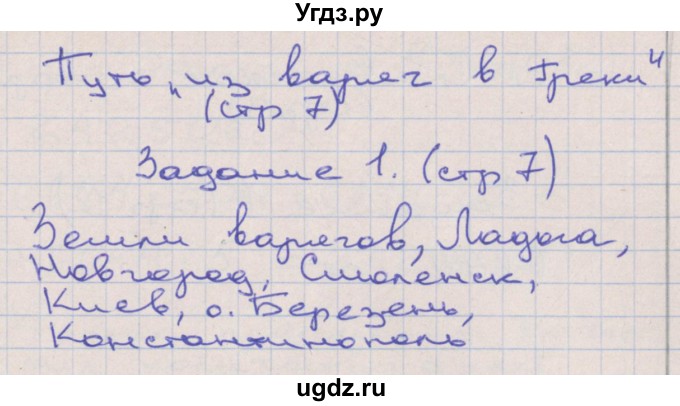 Угдз.ру
Путь „из варяг в греки“
(стр 7)
Задание 1. (стр 7)
Земли варягов, Ладога,
Новгород, Смоленск,
Киев, о. Березень,
Константинополь
ugdz.ru